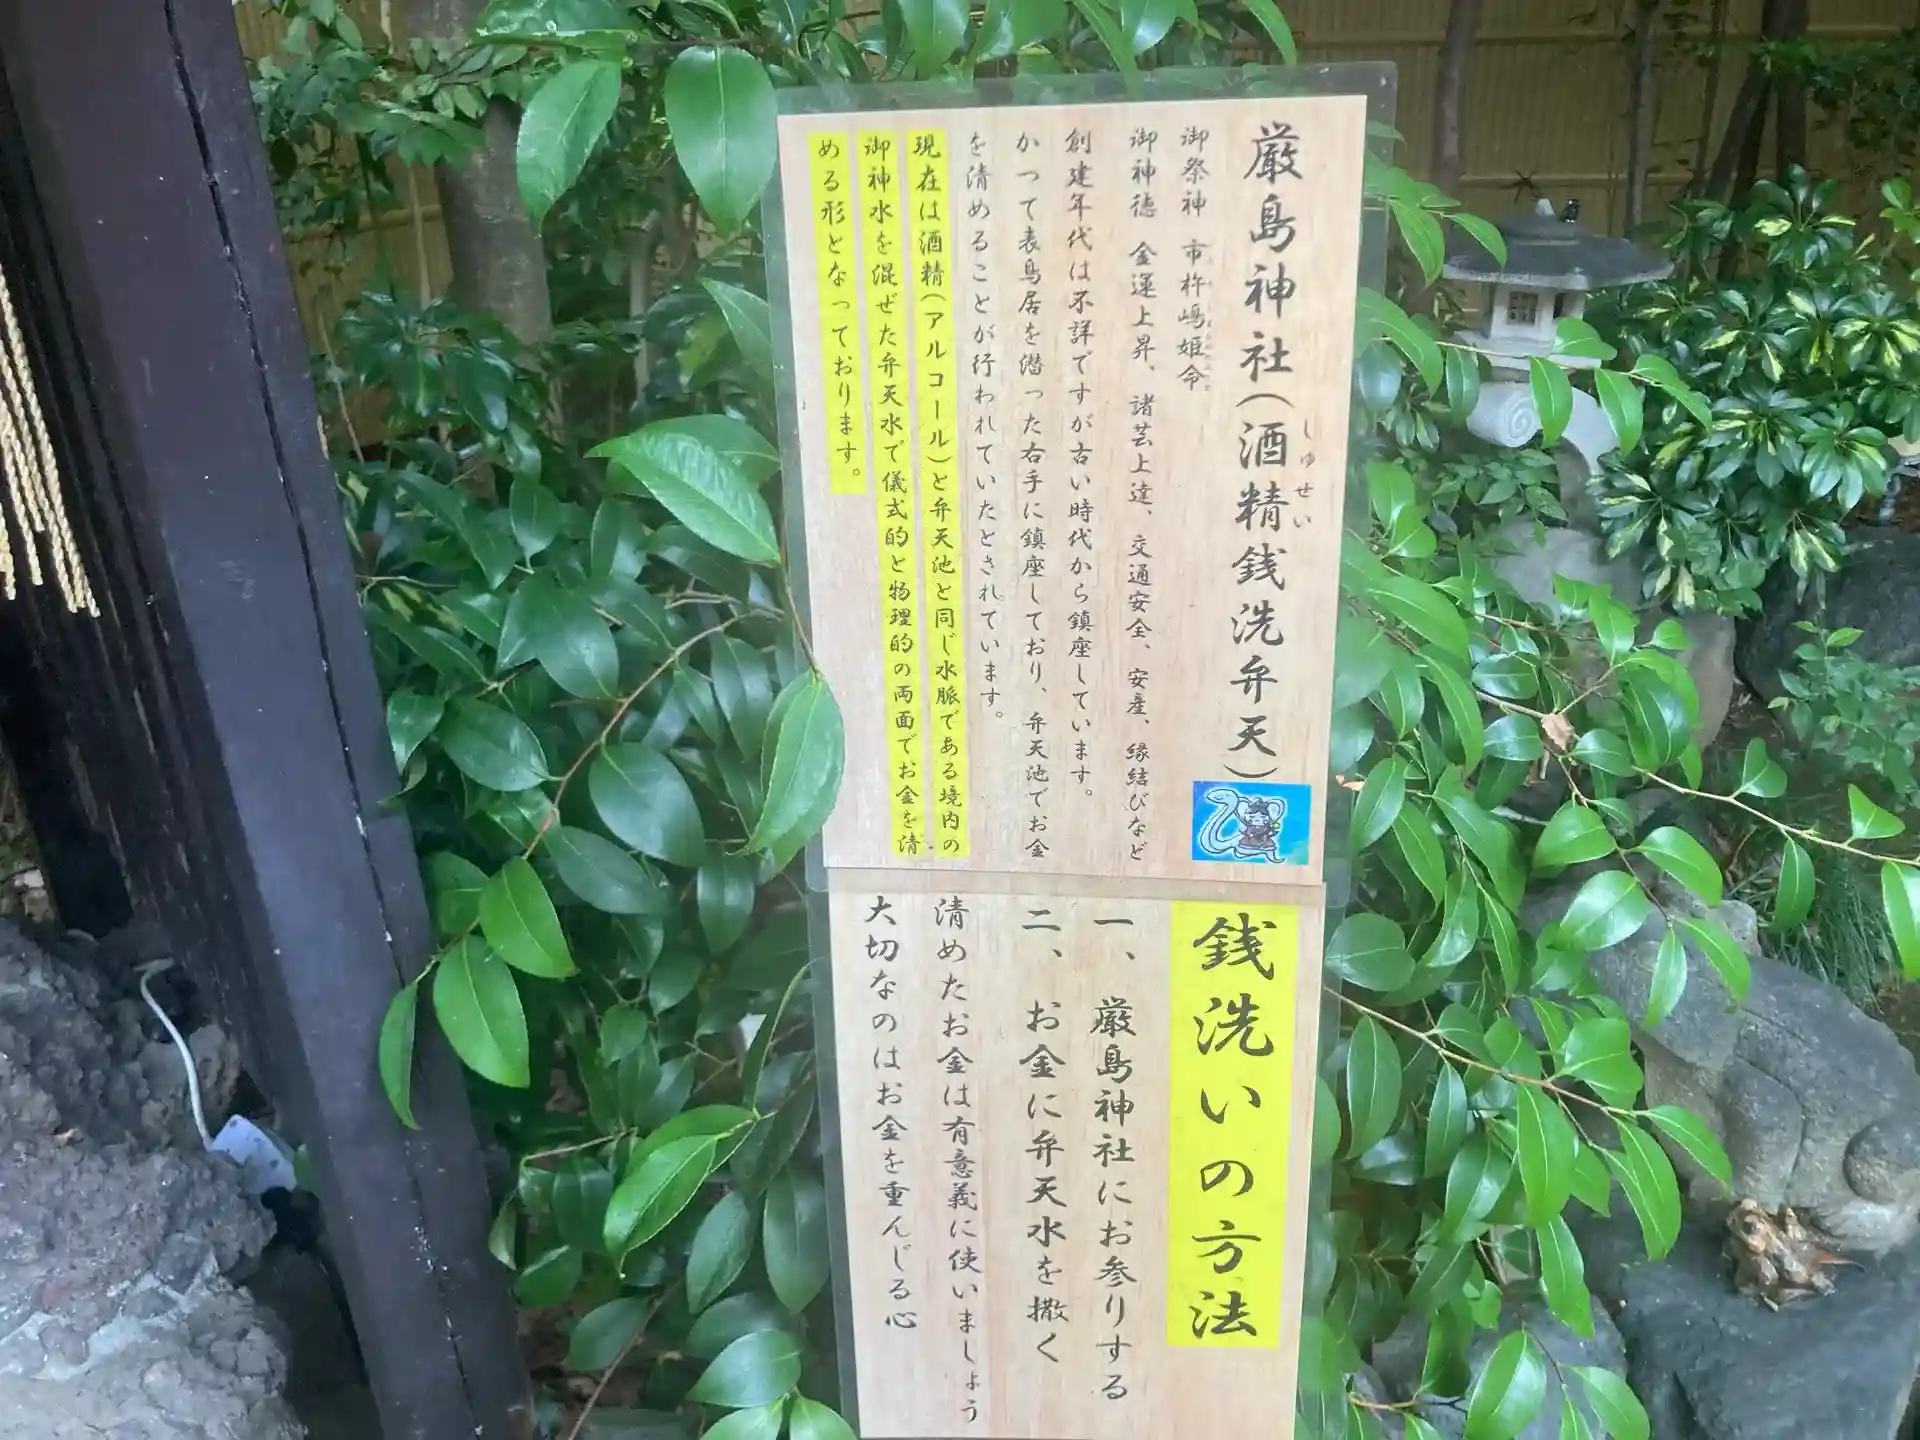 厳島神社(酒精銭洗弁天)
しゅせい
御祭神 市杵嶋姫令
御神徳 金運上昇、諸芸上達、交通安全、安産、縁結びなど
創建年代は不詳ですが古い時代から鎮座しています。
かつて表鳥居を潜った右手に鎮座しており、弁天池でお金
を清めることが行われていたとされています。
現在は酒精(アルコール)と弁天池と同じ水脈である境内の
御神水を混ぜた弁天水で儀式的と物理的の両面でお金を清
める形となっております。
銭洗いの方法
一、厳島神社にお参りする
二、お金に弁天水を撒く
清めたお金は有意義に使いましょう
大切なのはお金を重んじる心